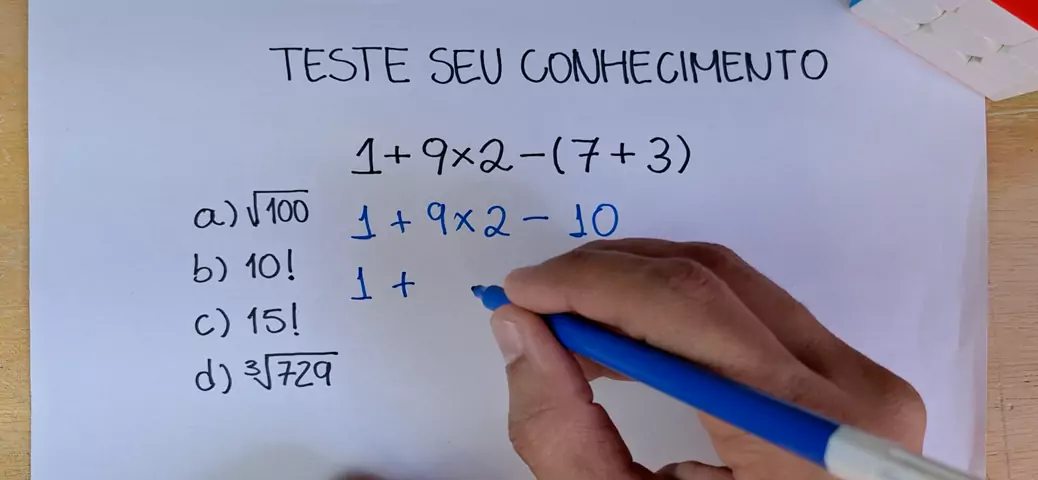 TESTE SEU CONHECIMENTO
1+9×2-(7+3)
a) √100
1 + 9×2 - 10
b) 10!
1 +
c) 15!
d) ³√729